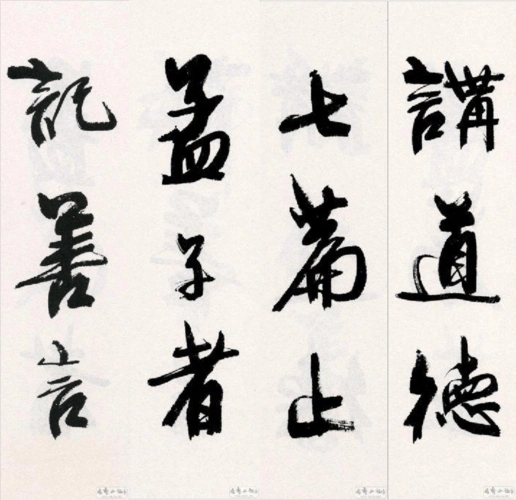 記善言
孟子者
七篇止
講道德